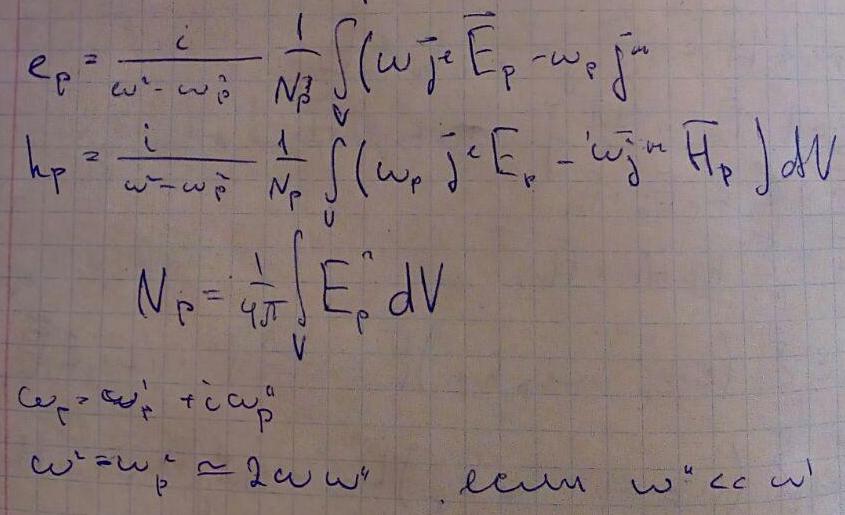 e_p = i / (ω² - ω_p²) 1/N_p ∫_V (ω j̄^e Ē_p - ω_p j̄^m
h_p = i / (ω² - ω_p²) 1/N_p ∫_V (ω_p j̄^e Ē_p - ω j̄^m H̄_p) dV
N_p = 1/4π ∫_V E_p² dV
ω_p = ω_p' + i ω_p''
ω² = ω_p² ≃ 2ω ω'' если ω'' << ω'